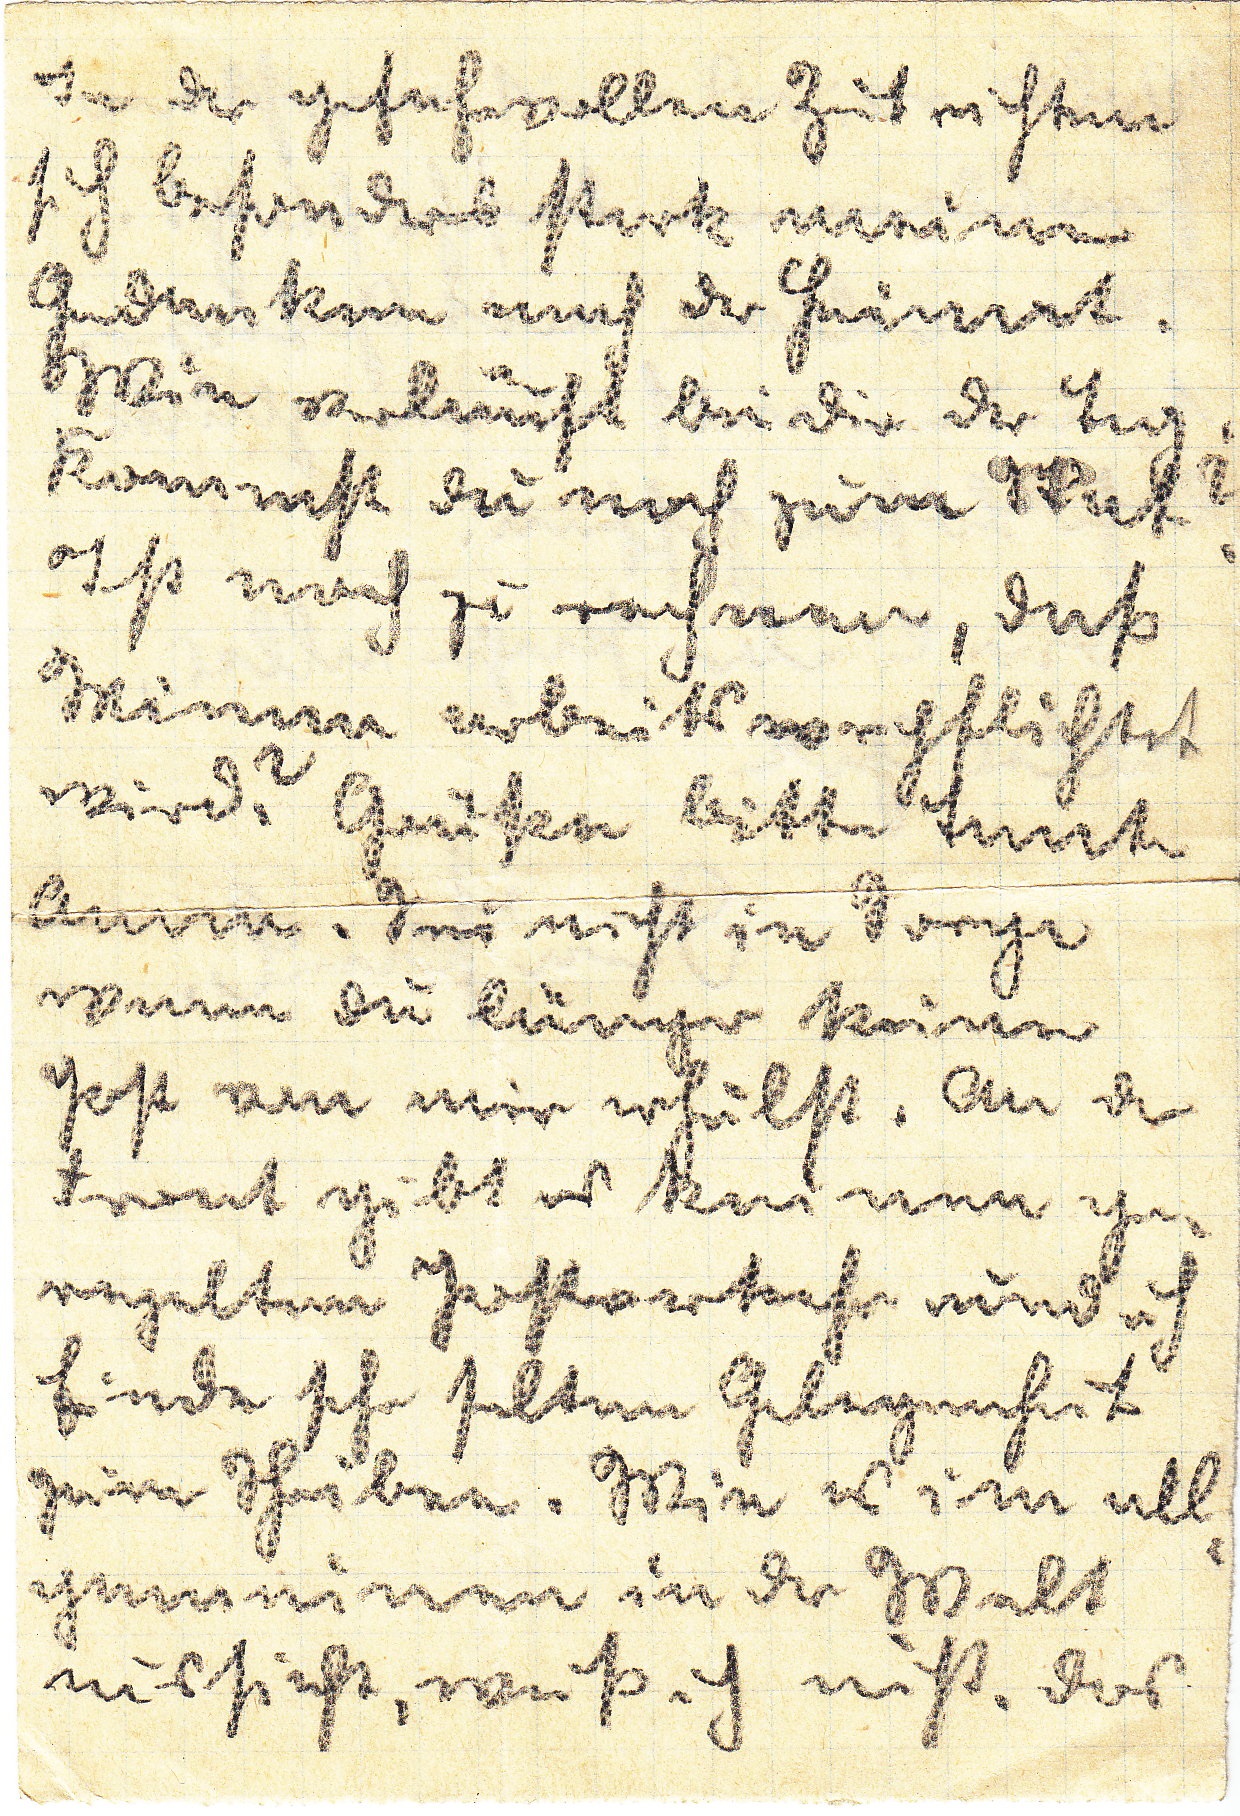 In der gefahrvollen Zeit richten
sich besonders stark meine
Gedanken nach der Heimat.
Wie verläuft bei dir der Tag,
Kommst du noch zum
Ist noch zu rechnen, daß
Minna arbeitsverpflichtet
wird? Grüßen bitte Tante
Anna. Sei nicht in Sorge
wenn du länger keine
Post von mir erhälst. An der
Front gibt es keinen ge
regelten Postverkehr und ich
finde sehr selten Gelegenheit
zum Schreiben. Wie es im all
gemeinen in der Welt
aussieht, weiß ich nicht. Das